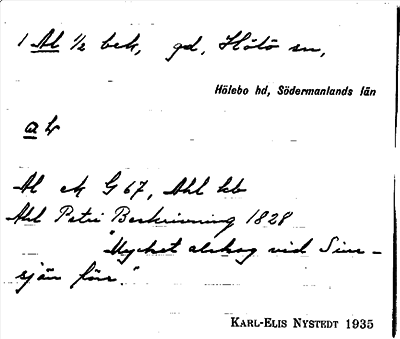 1 Al ½ bek, gd, Hölö sn,
Hölebo hd, Södermanlands län
a lv
Al ek G 67, Ahl kb
Ahl Petri Beskrivning 1828
"Mycket alskog vid Sim-
sjön förr."
KARL-ELIS NYSTEDT 1935